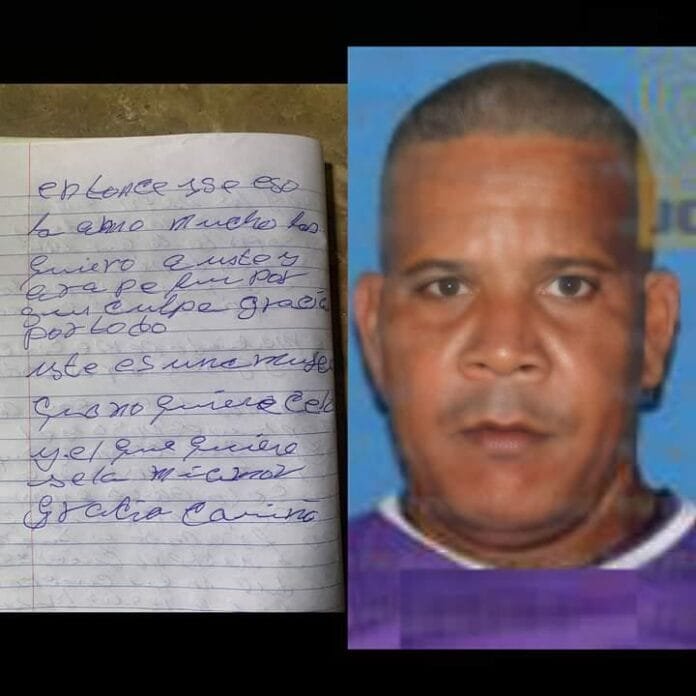 entonce use eso
la amo mucho las
quiero a uste y
ara pe fin por
mi culpa gracia
por todo
uste es una muje
que no quiere cel
y el que quiere
sela mi amor
gracia cariño
JC